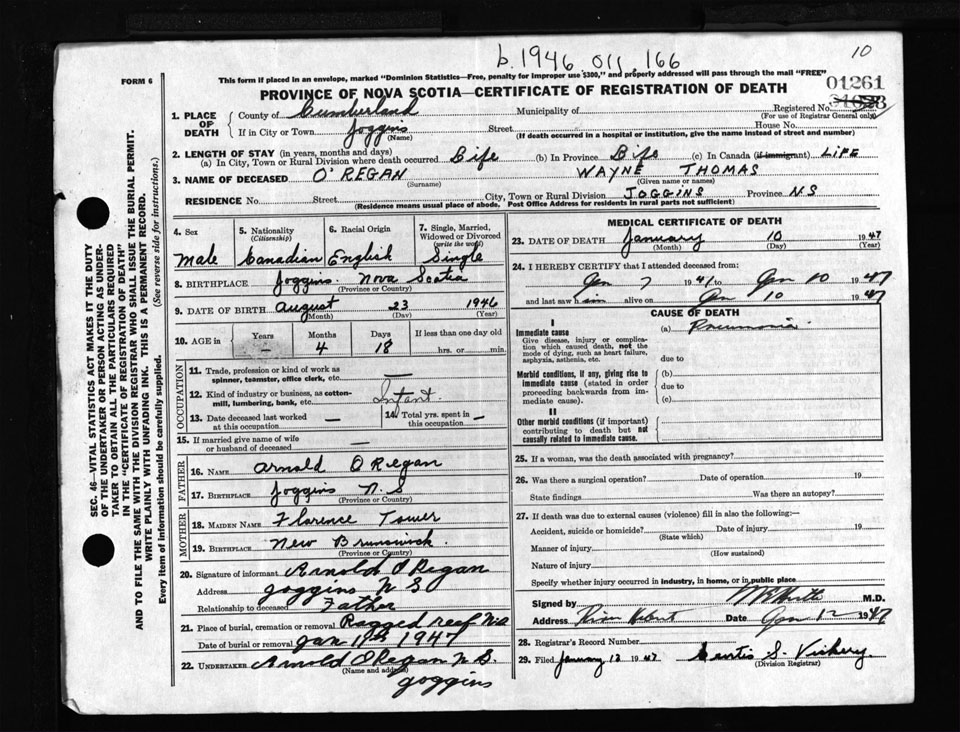 b. 1946. 011. 166
10
FORM 6
This form if placed in an envelope, marked "Dominion Statistics—Free, penalty for improper use $300," and properly addressed will pass through the mail "FREE"
01261
PROVINCE OF NOVA SCOTIA—CERTIFICATE OF REGISTRATION OF DEATH
1. PLACE OF DEATH
County of Cumberland Municipality of Registered No.
(For use of Registrar General only)
If in City or Town Joggins Street House No.
(Name) (If death occurred in a hospital or institution, give the name instead of street and number)
2. LENGTH OF STAY (in years, months and days)
(a) In City, Town or Rural Division where death occurred Life (b) In Province Life (c) In Canada (if immigrant) LIFE
3. NAME OF DECEASED O'REGAN WAYNE THOMAS
(Surname) (Given name or names)
RESIDENCE No. Street City, Town or Rural Division JOGGINS Province N.S
(Residence means usual place of abode. Post Office Address for residents in rural parts not sufficient)
4. Sex Male
5. Nationality (Citizenship) Canadian
6. Racial Origin English
7. Single, Married, Widowed or Divorced (write the word) Single
8. BIRTHPLACE Joggins Nova Scotia
(Province or Country)
9. DATE OF BIRTH August 23 1946
(Month) (Day) (Year)
10. AGE in Years Months Days If less than one day old
— 4 18 hrs. or min.
OCCUPATION
11. Trade, profession or kind of work as spinner, teamster, office clerk, etc. —
12. Kind of industry or business, as cotton-mill, lumbering, bank, etc. Infant
13. Date deceased last worked at this occupation —
14. Total yrs. spent in this occupation —
15. If married give name of wife or husband of deceased —
FATHER
16. NAME Arnold O Regan
17. BIRTHPLACE Joggins N. S
(Province or Country)
MOTHER
18. MAIDEN NAME Florence Tower
19. BIRTHPLACE New Brunswick
(Province or Country)
20. Signature of informant Arnold O Regan
Address Joggins N S
Relationship to deceased Father
21. Place of burial, cremation or removal Ragged reef N.S
Date of burial or removal Jan 11th 1947
22. UNDERTAKER Arnold O Regan N S.
(Name and address)
Joggins
MEDICAL CERTIFICATE OF DEATH
23. DATE OF DEATH January 10 1947
(Month) (Day) (Year)
24. I HEREBY CERTIFY that I attended deceased from:
Jan 7 1947 to Jan 10 1947
and last saw him alive on Jan 10 1947
CAUSE OF DEATH
I
Immediate cause
Give disease, injury or complication which caused death, not the mode of dying, such as heart failure, asphyxia, asthenia, etc.
(a) Pneumonia
due to
Morbid conditions, if any, giving rise to immediate cause (stated in order proceeding backwards from immediate cause).
(b)
due to
(c)
II
Other morbid conditions (if important) contributing to death but not causally related to immediate cause.
25. If a woman, was the death associated with pregnancy?
26. Was there a surgical operation? Date of operation 19
State findings Was there an autopsy?
27. If death was due to external causes (violence) fill in also the following:—
Accident, suicide or homicide? Date of injury 19
(State which)
Manner of injury
(How sustained)
Nature of injury
Specify whether injury occurred in industry, in home, or in public place
Signed by M.D.
Address River Hebert Date Jan 12 1947
28. Registrar's Record Number
29. Filed January 13 1947 Curtis S. Vickery.
(Division Registrar)
SEC. 46—VITAL STATISTICS ACT MAKES IT THE DUTY
OF THE UNDERTAKER OR PERSON ACTING AS UNDER-
TAKER TO OBTAIN ALL THE PARTICULARS REQUIRED
IN THE "CERTIFICATE OF REGISTRATION OF DEATH"
AND TO FILE THE SAME WITH THE DIVISION REGISTRAR WHO SHALL ISSUE THE BURIAL PERMIT.
WRITE PLAINLY WITH UNFADING INK. THIS IS A PERMANENT RECORD.
Every item of information should be carefully supplied. (See reverse side for instructions.)